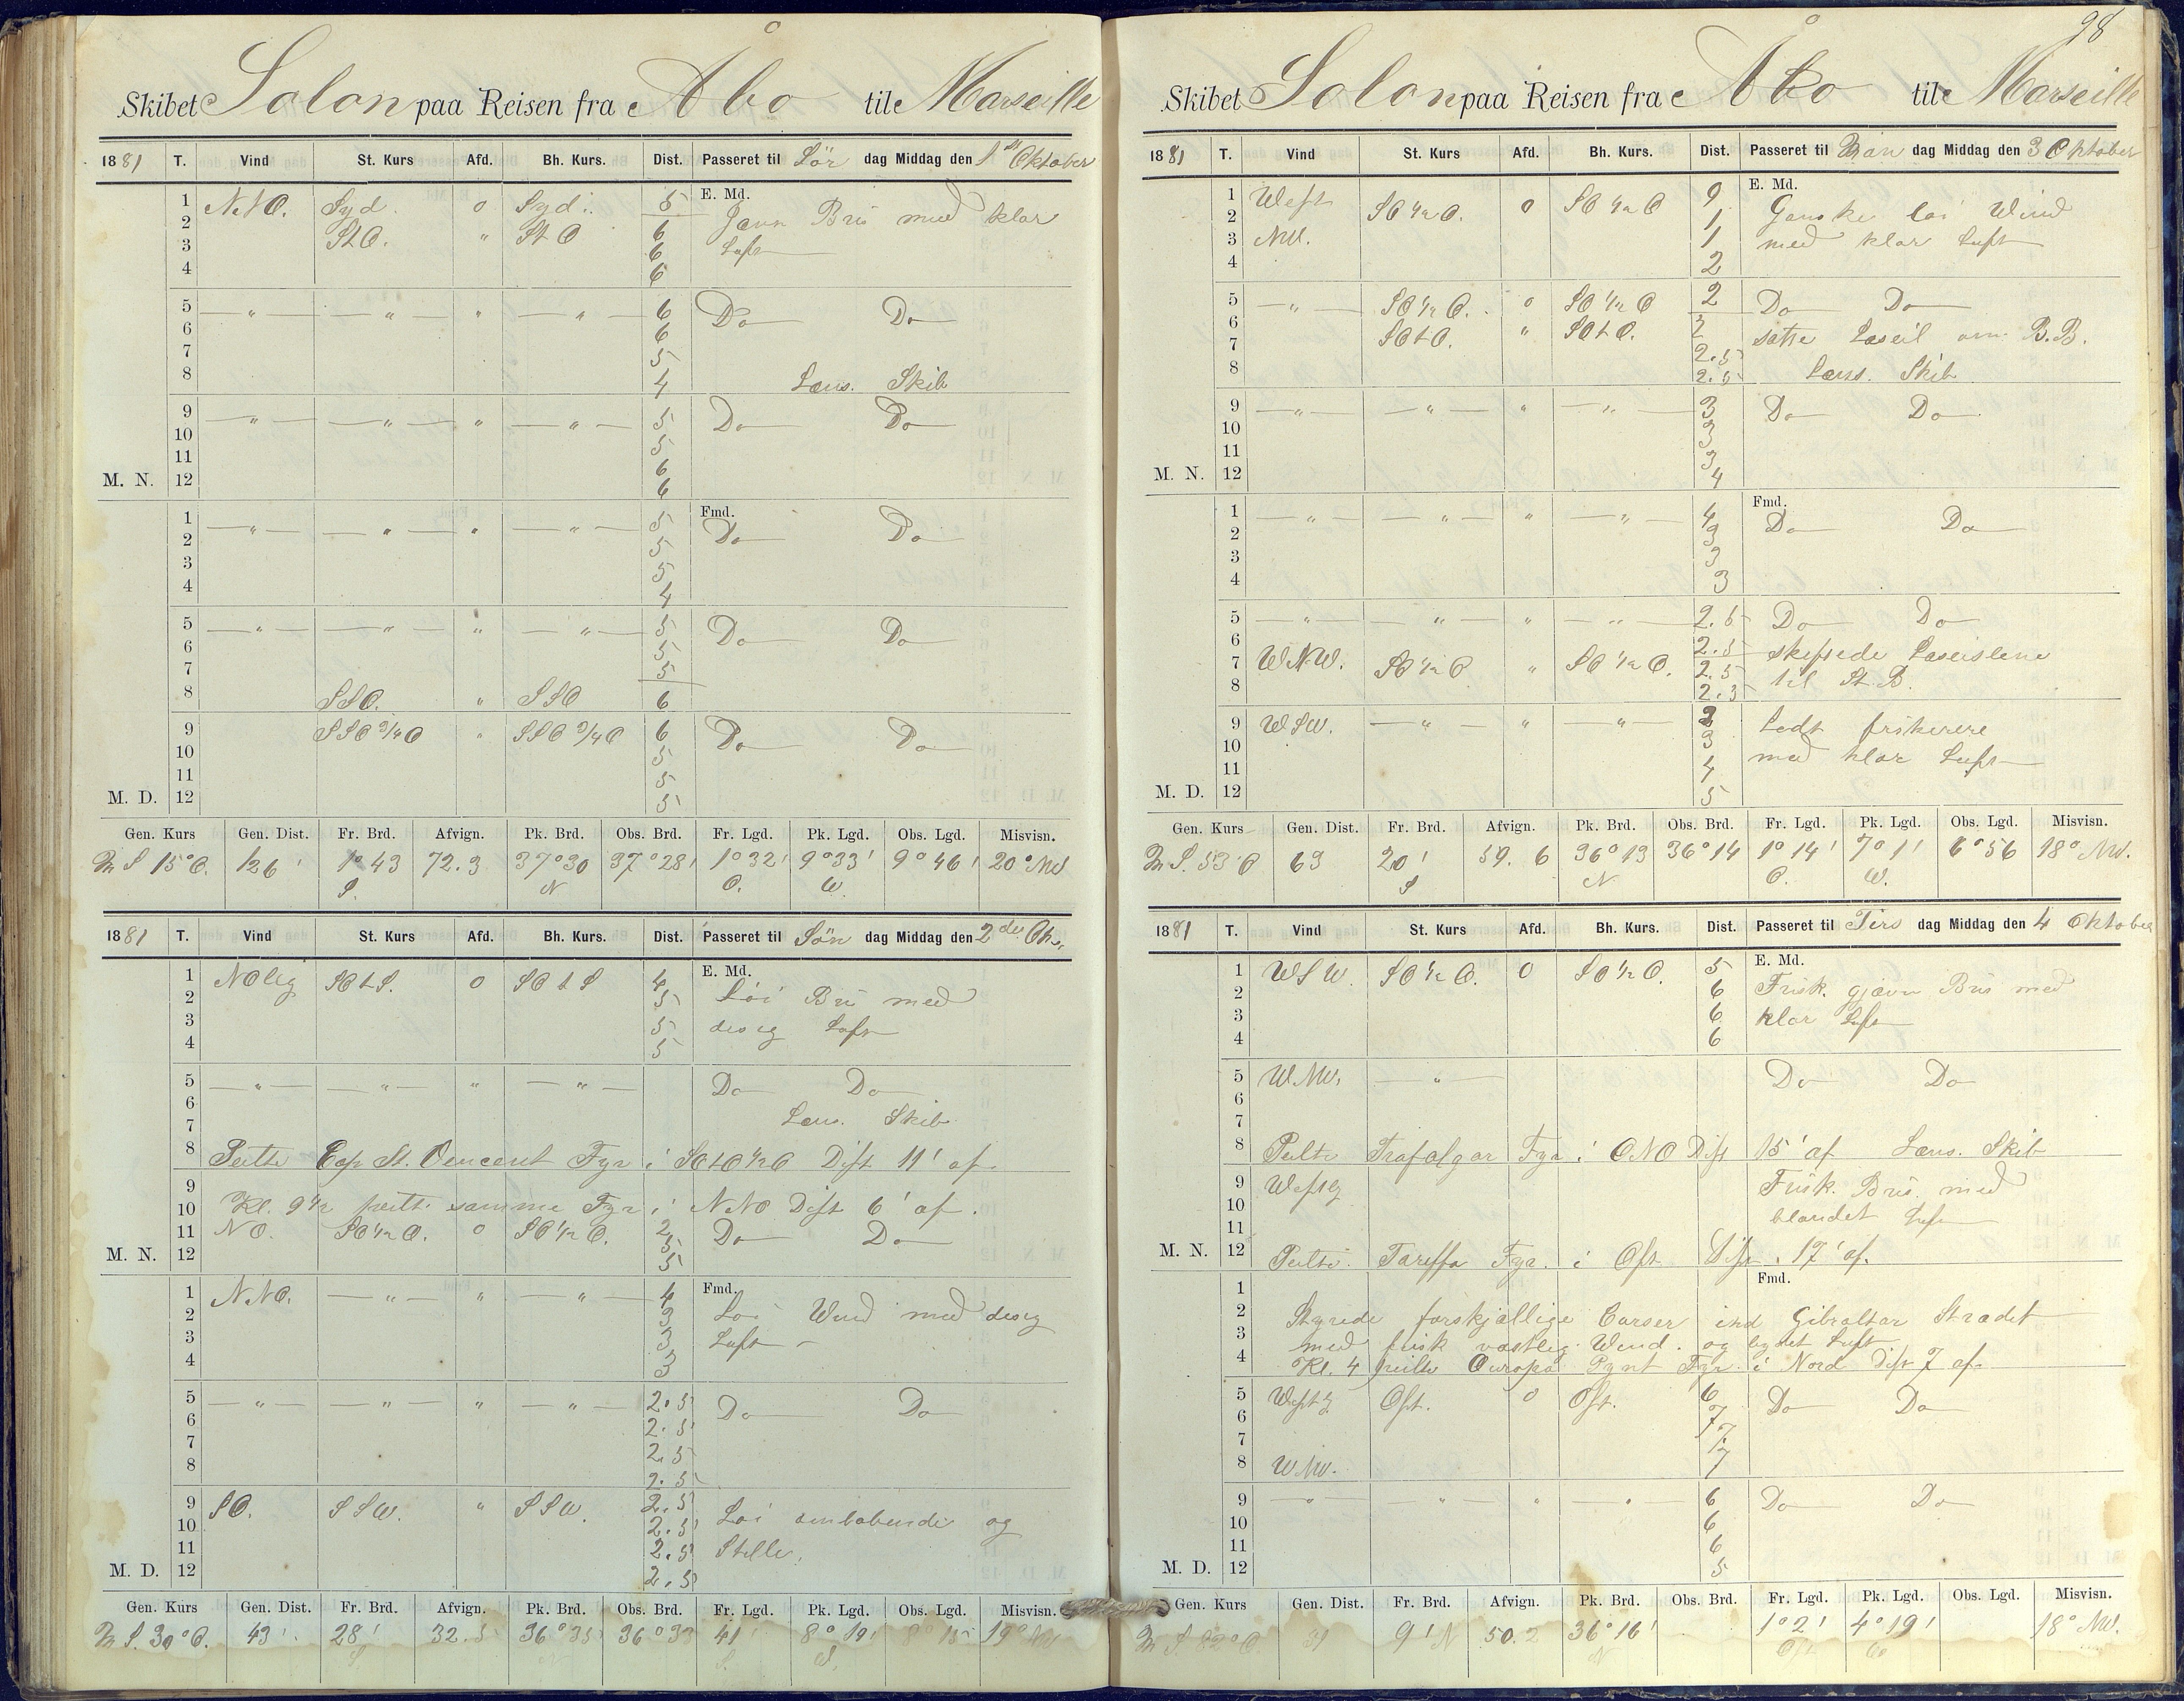 Skibet Solon paa Reisen fra Åbo til Marseille
1881 T. Vind St. Kurs Afd. Bh. Kurs. Dist. Passeret til Lör dag Middag den 1st Oktober
1 NNO. Syd. 0 Syd. 5 E. Md.
2 StO. " StO 6 Jævn Bris med klar
3 6 Luft
4 6
5 — " — — " — " — " — 6 Do Do
6 6
7 5
8 4 Læns. Skib
9 — " — — " — " — " — 5 Do Do
10 5
11 6
M. N. 12 6
1 — " — — " — " — " — 5 Fmd.
2 5 Do Do
3 5
4 4
5 — " — — " — " — " — 5 Do Do
6 5
7 5
8 SSO. " SSO 6
9 SSO 3/4 O " SSO 3/4 O 6 Do Do
10 5
11 5
M. D. 12 5
Gen. Kurs Gen. Dist. Fr. Brd. Afvign. Pk. Brd. Obs. Brd. Fr. Lgd. Pk. Lgd. Obs. Lgd. Misvisn.
S 15° O. 126' 1° 43 72.3 37° 30 37° 28' 1° 32' 9° 33' 9° 46' 20° NW
S. N O. W.
1881 T. Vind St. Kurs Afd. Bh. Kurs. Dist. Passeret til Sön dag Middag den 2de Ok.
1 NOlig SOtS. 0 SOtS 4 E. Md.
2 5 Löi Bris med
3 5 disig Luft
4 5
5 — " — — " — " — " — Do Do
6
7 Læns. Skib
8 Peilte Cap St. Vencent Fyr i SOtO 1/2 O Dist 11' af.
9
10 Kl. 9 1/2 peilte samme Fyr i NNO Dist 6' af.
11 NO. SO 1/2 O. 0 SO 1/2 O. 2 Do Do
M. N. 12 5
5
1 NNO. — " — " — " — 4 Fmd.
2 3 Löi Wind med disig
3 3 Luft —
4 3
5 — " — — " — " — " — 2.5 Do Do
6 2.5
7 2.5
8 2.5
9 SO. SSW. " SSW. 2.5
10 2.5 Löi omlöbende og
11 2.5 Stille.
M. D. 12 2.5
Gen. Kurs Gen. Dist. Fr. Brd. Afvign. Pk. Brd. Obs. Brd. Fr. Lgd. Pk. Lgd. Obs. Lgd. Misvisn.
S 30° O. 43' 28' 32.5 36° 35 36° 33 41' 8° 19' 8° 15 19° NW
98
Skibet Solon paa Reisen fra Åbo til Marseille
1881 T. Vind St. Kurs Afd. Bh. Kurs. Dist. Passeret til Man dag Middag den 3 Oktober
1 West SO 1/2 O. 0 SO 1/2 O E. Md.
2 1 Ganske löi Wind
3 NW. 1 med klar Luft
4 2
5 — " — SO 1/2 O. 0 SO 1/2 O 2 Do Do
6 SOtO. " SOtO. 2 satte Læseil om B.B.
7 2.5
8 2.5 Læns. Skib
9 — " — — " — " — " — 3 Do Do
10 3
11 3
M. N. 12 4
1 — " — — " — " — " — 4 Fmd.
2 3 Do Do
3 3
4 3
5 — " — — " — " — " — 2.5 Do Do
6 2.5 skiftede Læseilene
7 WNW. SO 1/2 O " SO 1/2 O. 2.5 til St.B.
8 2.5
9 WSW. — " — " — " — 3 Lidt friskerere
10 3 med klar Luft
11 4
M. D. 12 5
Gen. Kurs Gen. Dist. Fr. Brd. Afvign. Pk. Brd. Obs. Brd. Fr. Lgd. Pk. Lgd. Obs. Lgd. Misvisn.
S. 53 O 63 20' 59.6 36° 13 36° 14 1° 14' 7° 1' 6° 56 18° NW.
S N O. W.
1881 T. Vind St. Kurs Afd. Bh. Kurs. Dist. Passeret til Tirs dag Middag den 4 Oktober
1 WSW. SO 1/2 O. 0 SO 1/2 O. 5 E. Md.
2 6 Frisk. gjævn Bris med
3 6 klar Luft
4 6
5 WNW. — " — Do Do
6
7
8 Peilte Trafalgar Fyr i ONO Dist 15' af Læns. Skib
9 Westlg Frisk. Bris. med
10 blandet Luft
11
M. N. 12 Peilte. Tareffa Fyr. i Ost Dist. 17' af.
1 Fmd.
2 Styrede forskjællige Curser ind Gibraltar Strædet
3 med frisk væstlig Wind. og bydet Luft
4 Kl. 4 peilte Europa Pynt Fyr i Nord Dist 7 af.
5 Westlg Ost. 0 Ost. 6 Do Do
6 7
7 7
8 WNW. 7
9 — " — " " " 6 Do Do
10 6
11 6
M. D. 12 5
Gen. Kurs Gen. Dist. Fr. Brd. Afvign. Pk. Brd. Obs. Brd. Fr. Lgd. Pk. Lgd. Obs. Lgd. Misvisn.
S 82° O. 51 9' N 50.2 36° 16' 1° 2' 4° 19' 18° NW.